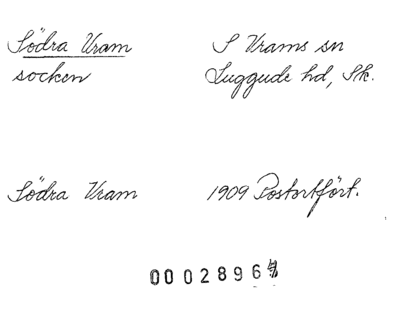 Södra Vram S Vrams sn
socken Luggude hd, Sk.
Södra Vram 1909 Postortfört.
0002896